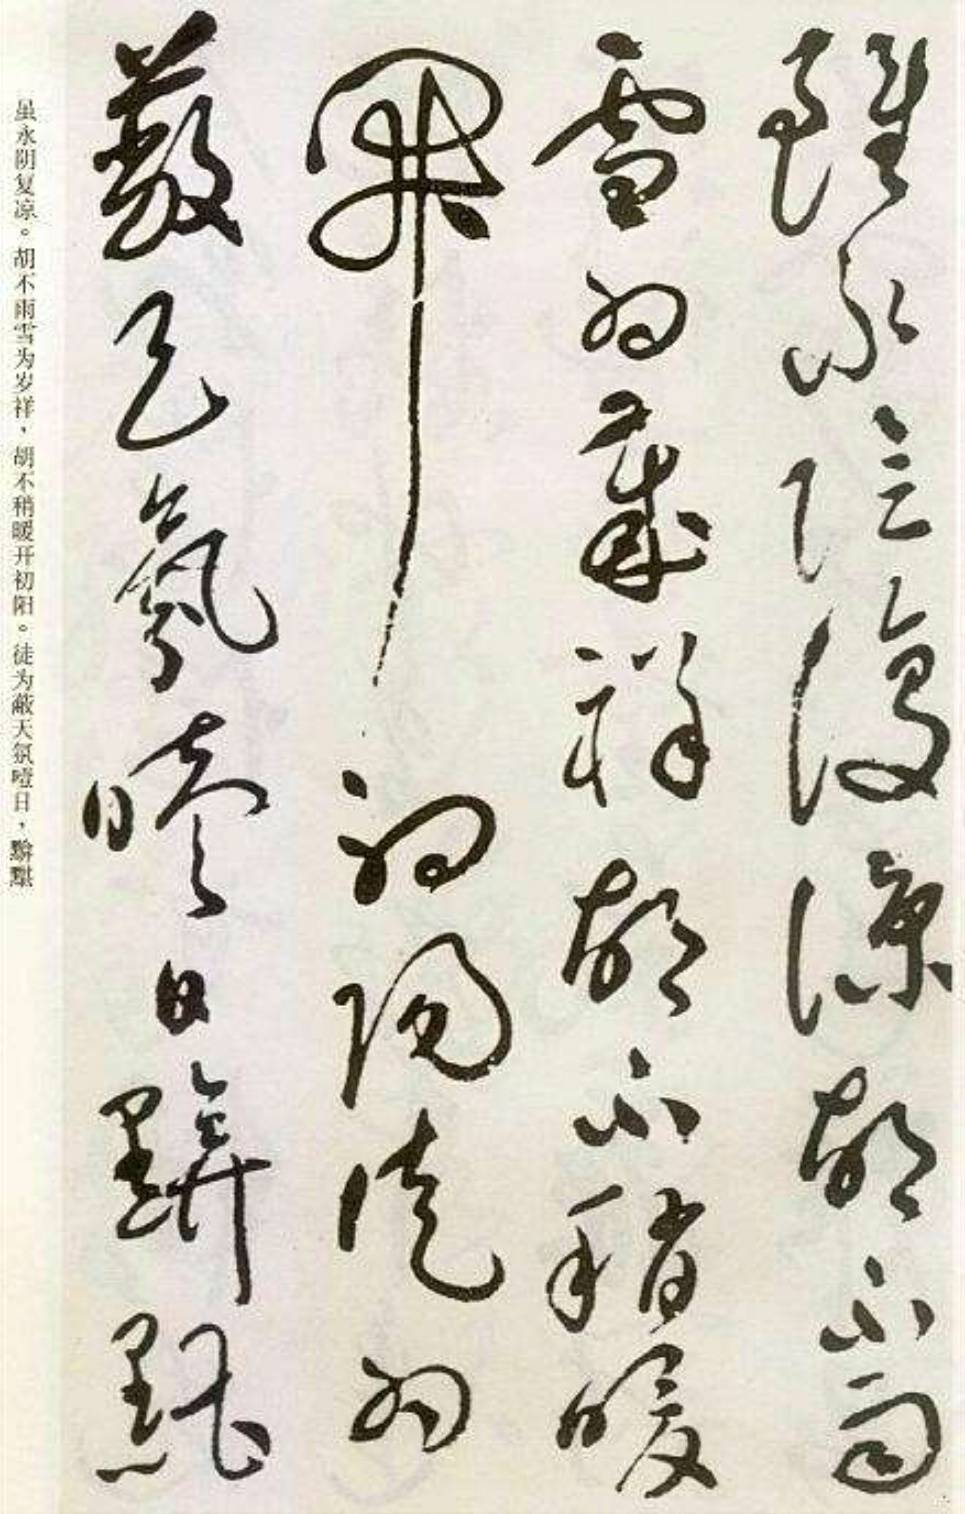 雖永陰復涼胡不雨
雪为歲祥胡不稍暖
開初陽徒为
蔽天氛曀日黭黮
虽永阴复凉。胡不雨雪为岁祥，胡不稍暖开初阳。徒为蔽天氛曀日，黭黮